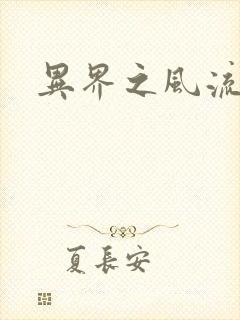 異界之風流
夏長安